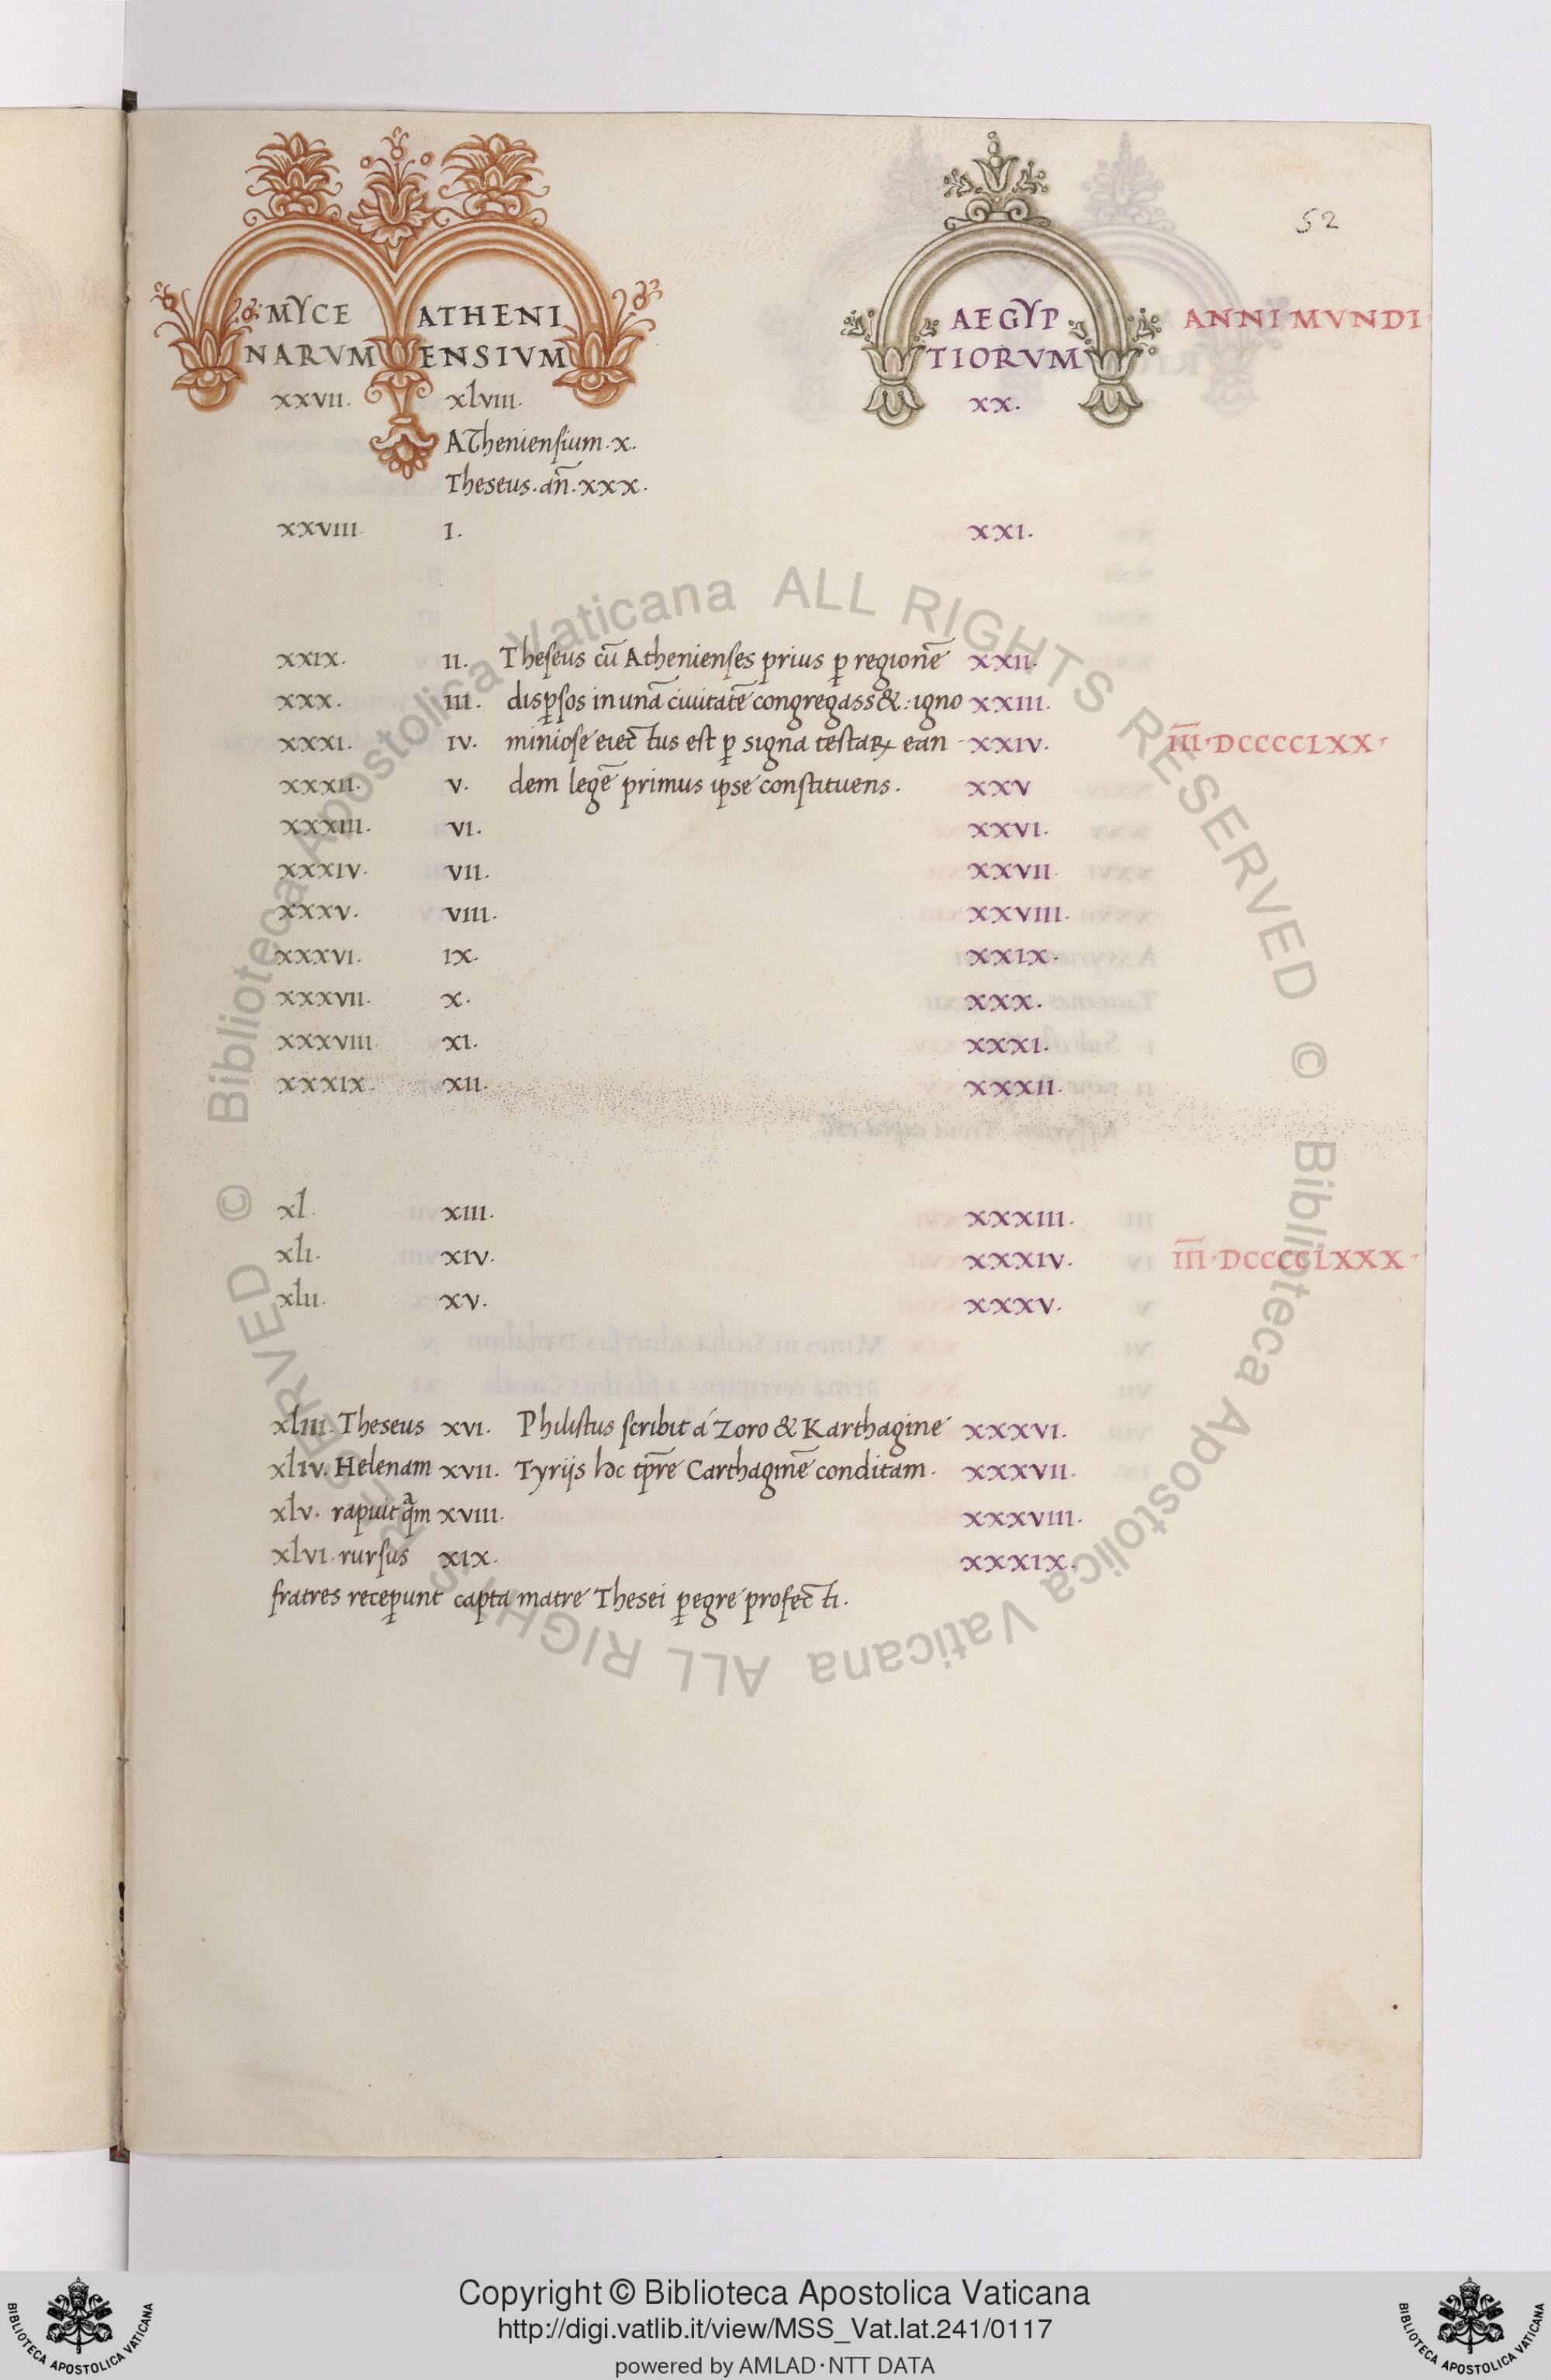 52
MYCE ATHENI AEGYP ANNI MVNDI
NARVM ENSIVM TIORVM
xxvii. xlviii. xx.
Atheniensium.x.
Theseus.an̄.xxx.
xxviii. I. xxi.
xxix. ii. Theseus cū Athenienses prius ꝑ regionē xxii.
xxx. iii. disꝑsos in unā ciuitatē congregass&: igno xxiii.
xxxi. iv. miniose eiectus est ꝑ signa testaꝝ ean- xxiv. I̅I̅I̅·DCCCCLXX·
xxxii. v. dem legē primus ipse constituens. xxv
xxxiii. vi. xxvi.
xxxiv. vii. xxvii.
xxxv. viii. xxviii.
xxxvi. ix. xxix.
xxxvii. x. xxx.
xxxviii. xi. xxxi.
xxxix. xii. xxxii.
xl. xiii. xxxiii.
xli. xiv. xxxiv. I̅I̅I̅·DCCCCLXXX·
xlii. xv. xxxv.
xliii. Theseus xvi. Philistus scribit á Zoro & Karthagine xxxvi.
xliv. Helenam xvii. Tyrijs hoc tp̄re Carthaginē conditam. xxxvii.
xlv. rapuit qᵃm xviii. xxxviii.
xlvi. rursus xix. xxxix.
fratres receꝑunt capta matre Thesei ꝑegre profecti.
© Biblioteca Apostolica Vaticana ALL RIGHTS RESERVED © Biblioteca Apostolica Vaticana ALL RIGHTS RESERVED
Copyright © Biblioteca Apostolica Vaticana
http://digi.vatlib.it/view/MSS_Vat.lat.241/0117
powered by AMLAD·NTT DATA
BIBLIOTECA APOSTOLICA VATICANA
BIBLIOTECA APOSTOLICA VATICANA